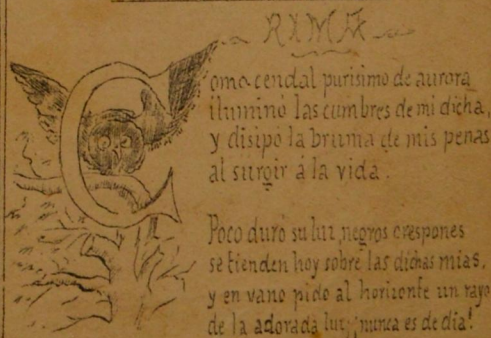 RIMA
Como cendal purisimo de aurora
iluminó las cumbres de mi dicha,
y disipó la bruma de mis penas
al surgir á la vida.
Poco duró su luz, negros crespones
se tienden hoy sobre las dichas mias,
y en vano pido al horizonte un rayo
de la adorada luz; ¡nunca es de dia!